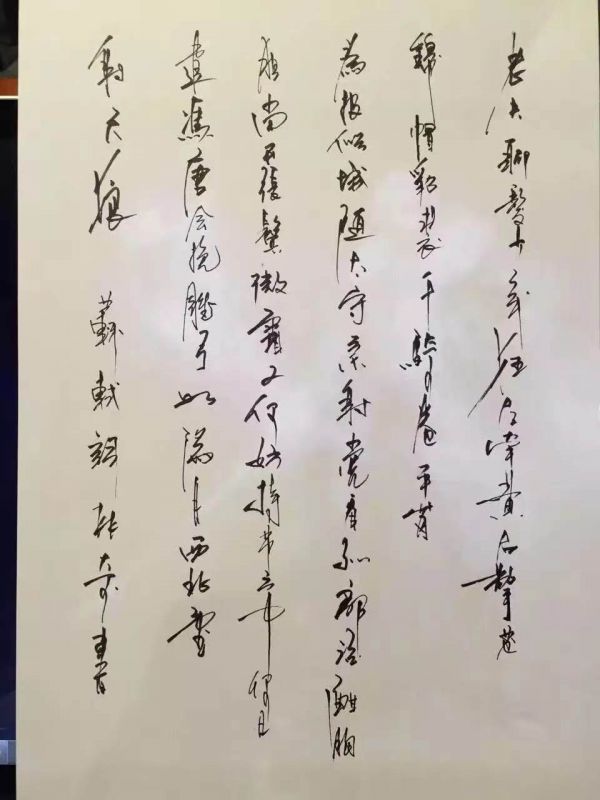 老夫聊發少年狂左牽黃右擎蒼
錦帽貂裘千騎卷平崗
為報傾城隨太守親射虎看孫郎酒酣胸
膽尚開張鬢微霜又何妨持節云中何日
遣馮唐會挽雕弓如滿月西北望
射天狼 蘇軾詞 奇書